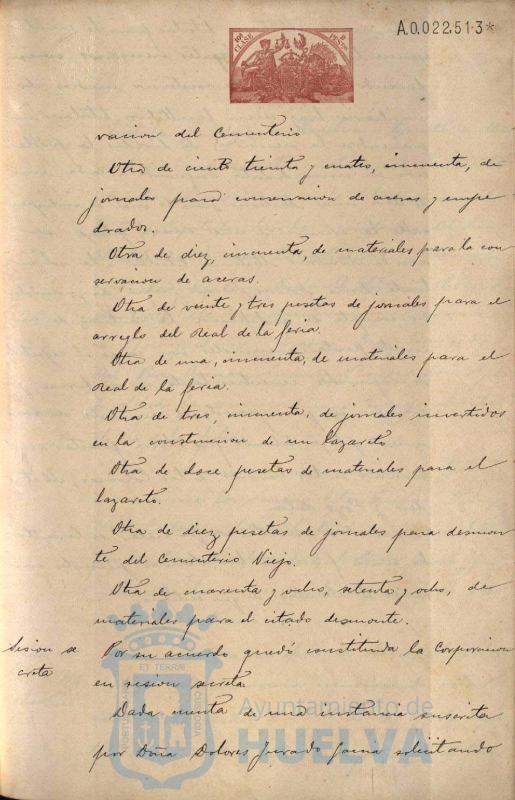 A.0.022.513*
10ª CLASE 2 PESETAS
vacion del Cementerio
Otra de ciento treinta y cuatro, cincuenta, de
jornales para conservacion de aceras y empe
drados.
Otra de diez, cincuenta, de materiales para la con
servacion de aceras.
Otra de veinte y tres pesetas de jornales para el
arreglo del Real de la feria.
Otra de una, cincuenta, de materiales para el
Real de la feria.
Otra de tres, cincuenta, de jornales invertidos
en la construccion de un lazareto
Otra de doce pesetas de materiales para el
lazareto.
Otra de diez pesetas de jornales para desmon
te del cementerio Viejo.
Otra de cuarenta y ocho, setenta y ocho, de
materiales para el citado desmonte.
Sesion se
creta
Por su acuerdo quedó constituida la Corporacion
en sesion secreta.
Dada cuenta de una instancia suscrita
por Doña Dolores Jurado solicitando
ET TERRÆ
Ayuntamiento de
HUELVA